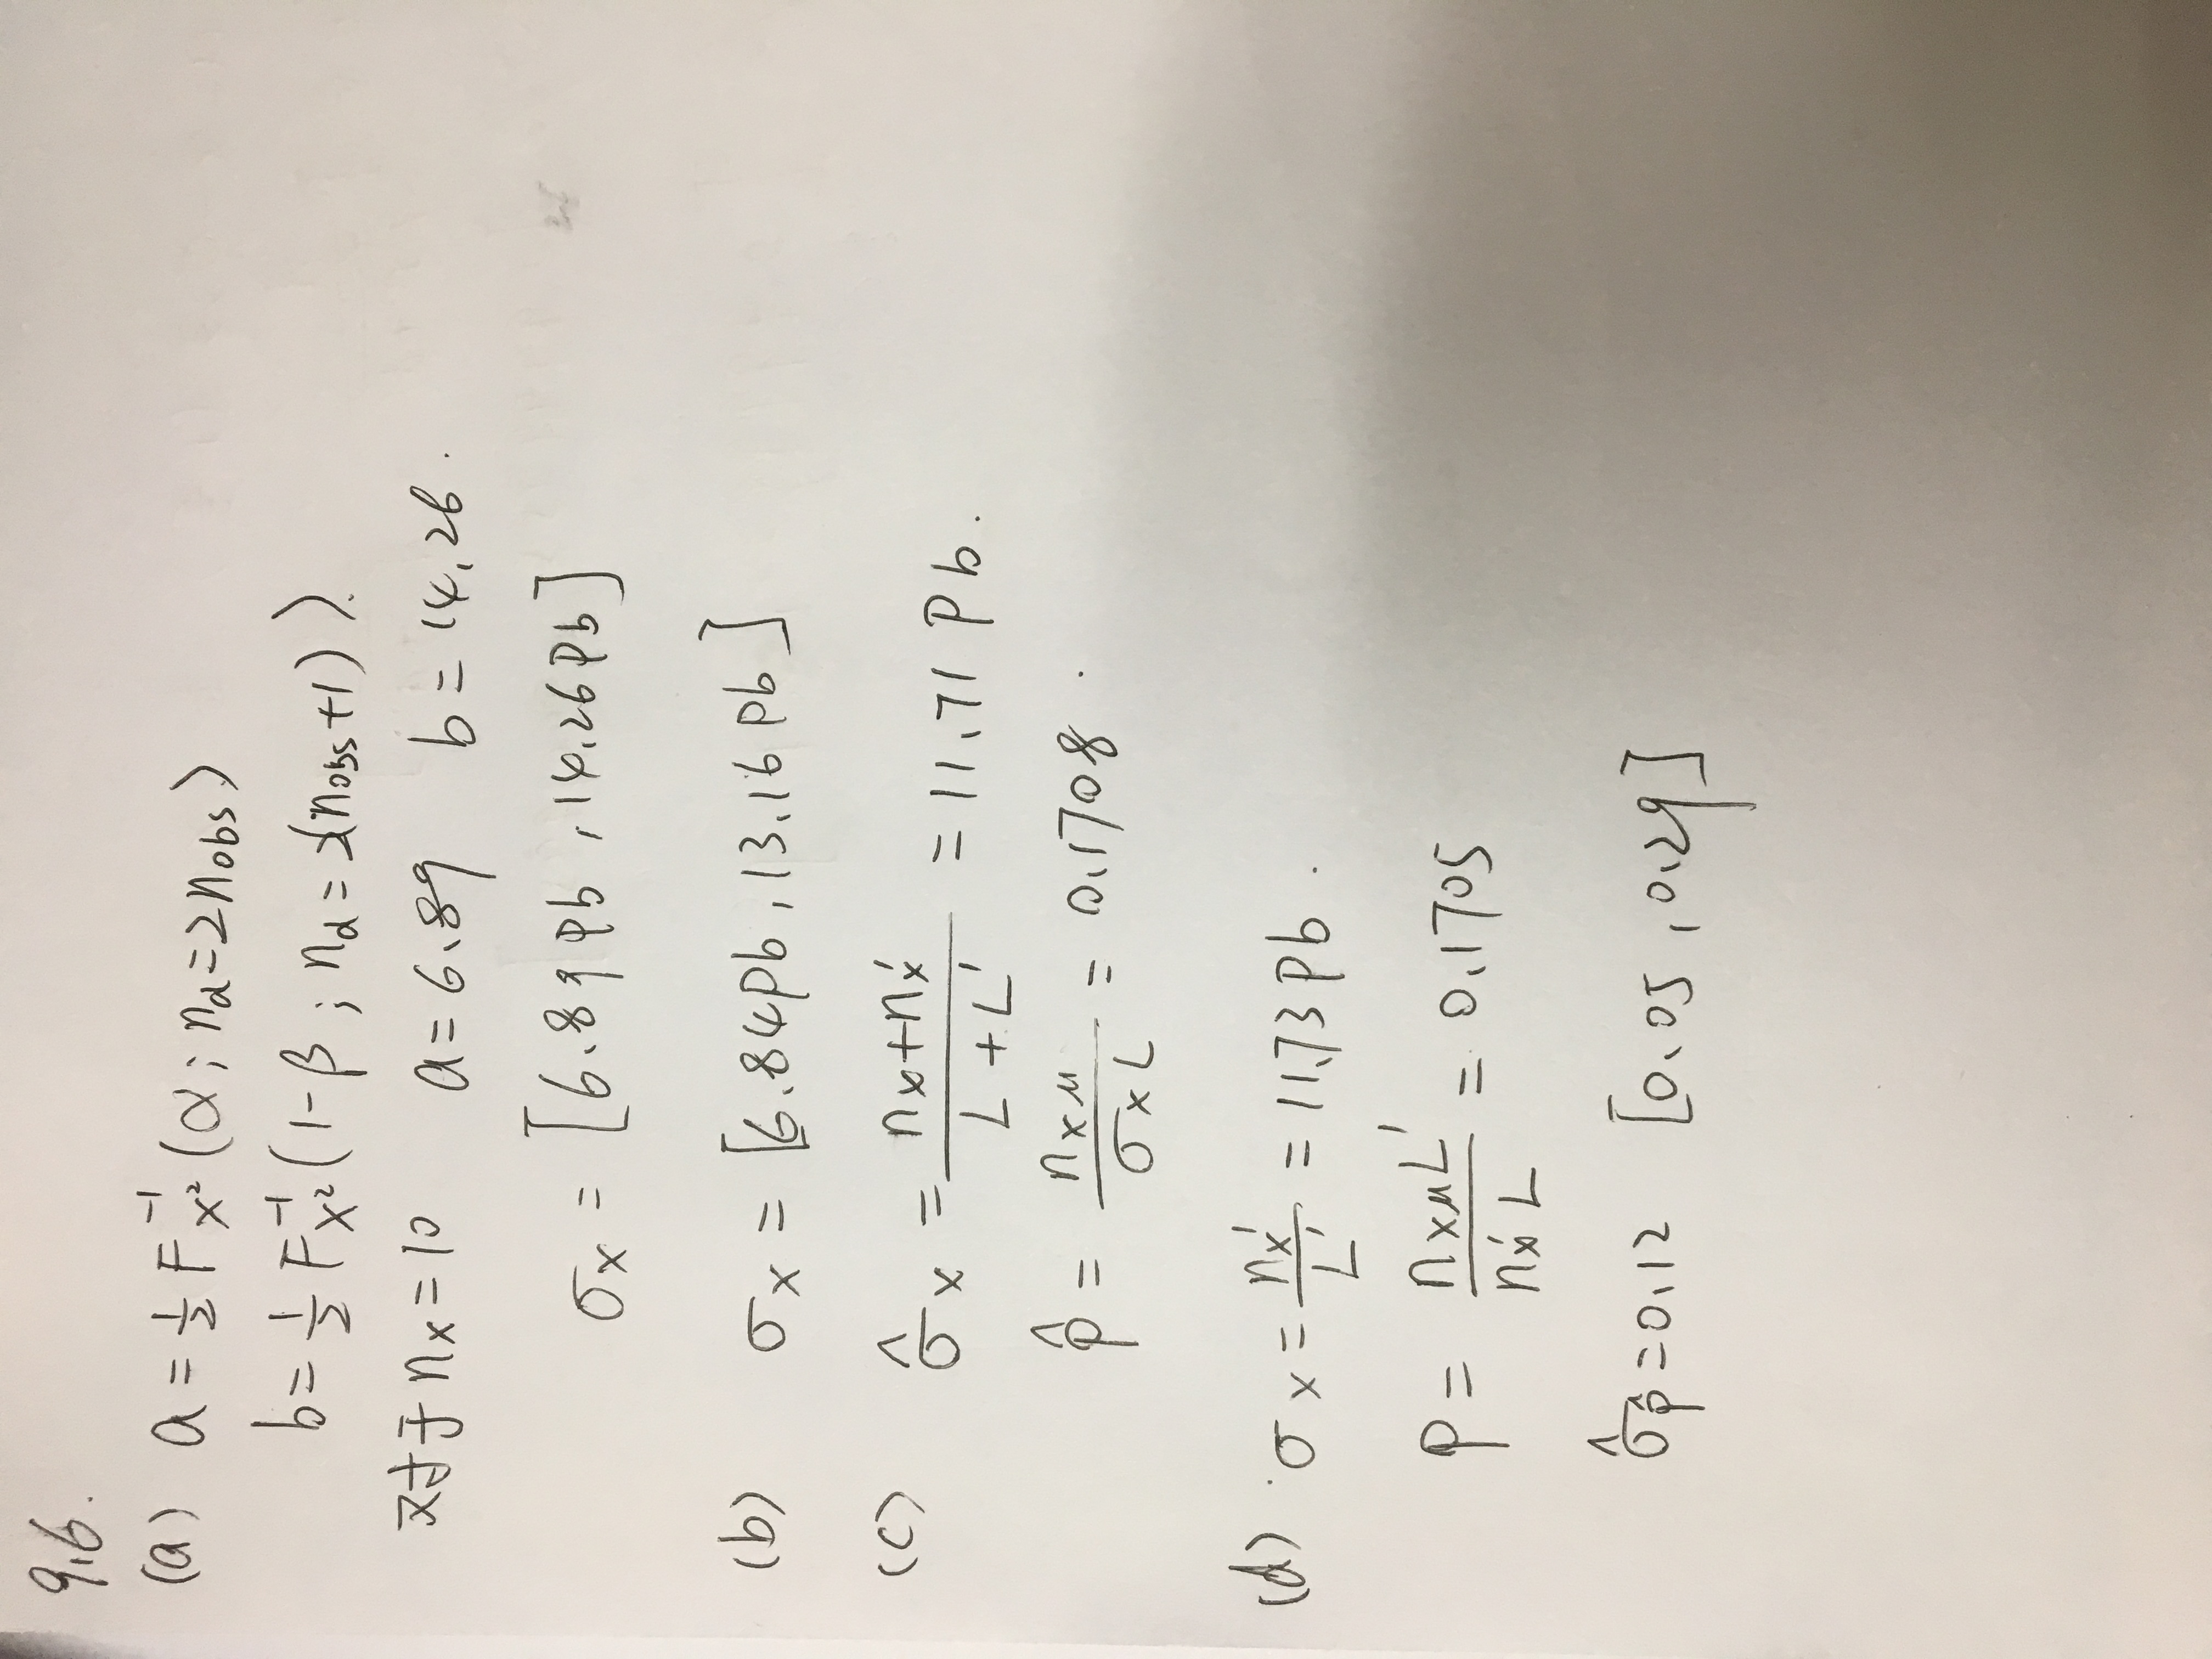 9.6.
(a) a = 1/2 F⁻¹_χ² (α; n_d = 2n_obs)
b = 1/2 F⁻¹_χ² (1-β; n_d = 2(n_obs+1)).
对于 n_x = 10 a = 6.89 b = 14.26.
σ_x = [6.89 pb, 14.26 pb]
(b) σ_x = [6.84 pb, 13.16 pb]
(c) σ̂_x = (n_x + n_x')/(L + L') = 11.71 pb.
p̂ = (n_x μ)/(σ_x L) = 0.1708.
(d) σ_x = n_x'/L' = 11.73 pb.
p = (n_x μ L')/(n_x' L) = 0.1705
σ̂_p̂ = 0.12 [0.05, 0.29]